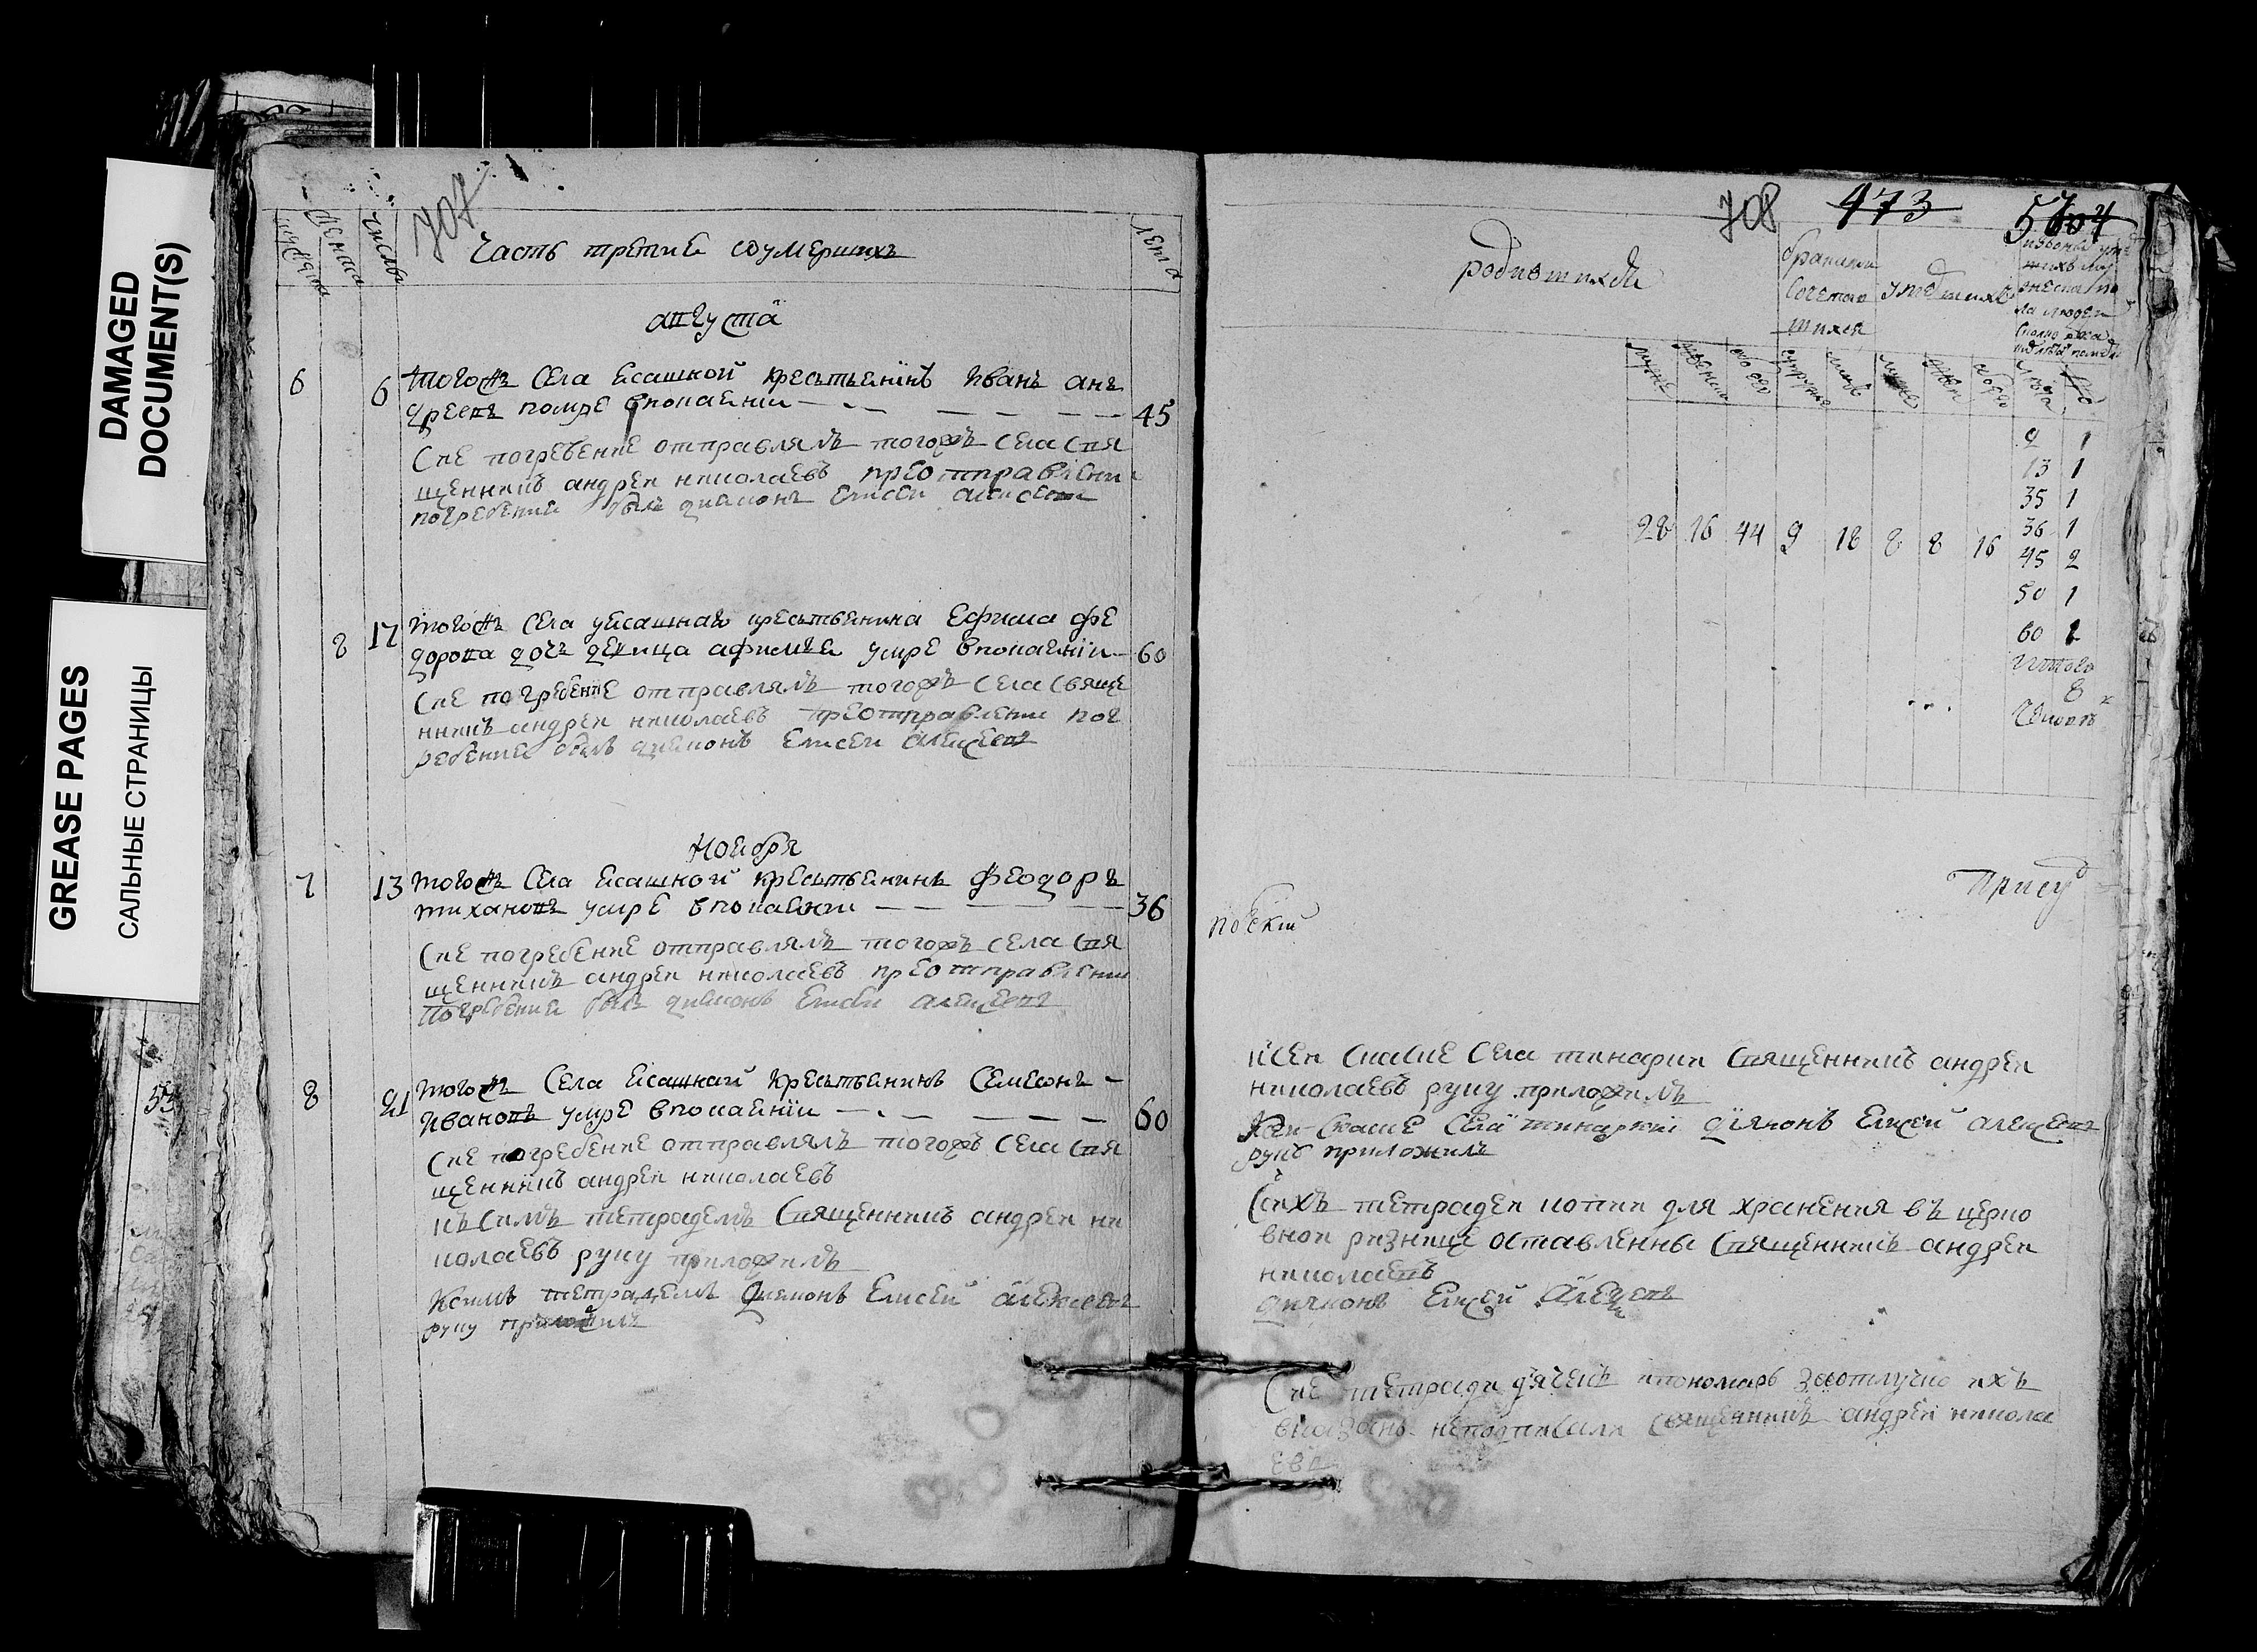 DAMAGED
DOCUMENT(S)
GREASE PAGES
САЛЬНЫЕ СТРАНИЦЫ
53
707
числы
лета
Часть третия оумершихъ
августа
6 6 тогожъ села ясашной крестьянинъ Иванъ анъ
дреевъ помре впокаянїи 45
Сие погребение отправлялъ тогожъ села свя
щенникъ андреи николаевъ преотправлении
погребения былъ диаконъ Елисеи алексеевъ
8 17 тогожъ села уясашнаго крестьянина Ефима фе
дорова дочь девица афимья умре впокаянїи 60
Сие погребение отправлялъ тогожъ села свяще
нникъ андреи николаевъ преотправлении пог
ребения былъ диаконъ Елисеи алексеевъ
Ноября
7 13 тогожъ села ясашной крестьянинъ феодоръ
тихановъ умре впокаянии 36
Сие погребение отправлялъ тогожъ села свя
щенникъ андреи николаевъ преотправлении
погребения былъ диаконъ Елисеи алексеевъ
8 21 тогожъ села ясашнай крестьянинъ Семеонъ
Ивановъ умре впокаянїи 60
Сие погребение отправлялъ тогожъ села свя
щенникъ андреи николаевъ
къ симъ тетрадемъ священникъ андреи ни
колаевъ руку приложилъ
Ксимъ тетрадемъ диаконъ Елисей алексеевъ
руку приложилъ
708 473
родившихся
бракомъ
сочетав
шихся
умершихъ
28 16 44 9 18 8 8 16
9 1
13 1
35 1
36 1
45 2
50 1
60 1
итого
8
человекъ
села священникъ андреи
николаевъ руку приложилъ
села дїяконъ Елисей алексеевъ
руку приложилъ
Сихъ тетрадеи копии для хранения въ церко
внои ризнице оставленны священникъ андреи
николаевъ
дияконъ Елисей алексеевъ
Сие тетради дьячекъ ипономарь заотлучно ихъ
неподписали священникъ андреи никола
евъ